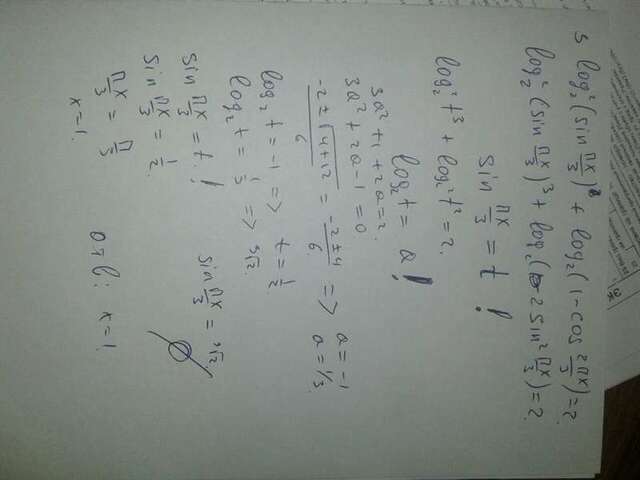 5 log₂²(sin πx/3)³ + log₂(1 − cos 2πx/3) = 2.
log₂²(sin πx/3)³ + log₂(2 sin² πx/3) = 2.
sin πx/3 = t !
log₂² t³ + log₂ t² = 2.
log₂ t = a !
3a² + 1 + 2a = 2.
3a² + 2a − 1 = 0
(−2 ± √(4+12))/6 = (−2 ± 4)/6 => a = −1
a = 1/3.
log₂ t = −1 => t = 1/2.
log₂ t = 1/3 => ³√2.
sin πx/3 = t !
sin πx/3 = 1/2. sin πx/3 = ³√2.
∅
πx/3 = π/3
x = 1.
Отв: x = 1.